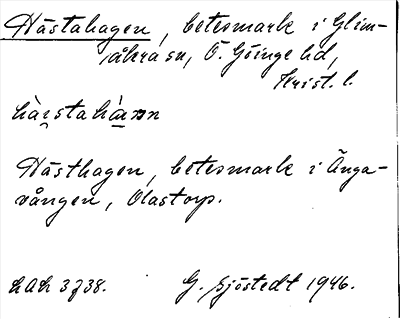 Hästahagen, betesmark i Glim-
åkra sn, Ö. Göinge hd,
Krist. l.
Hästhagen, betesmark i Änga-
vången, Olastorp.
LAL 3738.  G. Sjöstedt 1946.